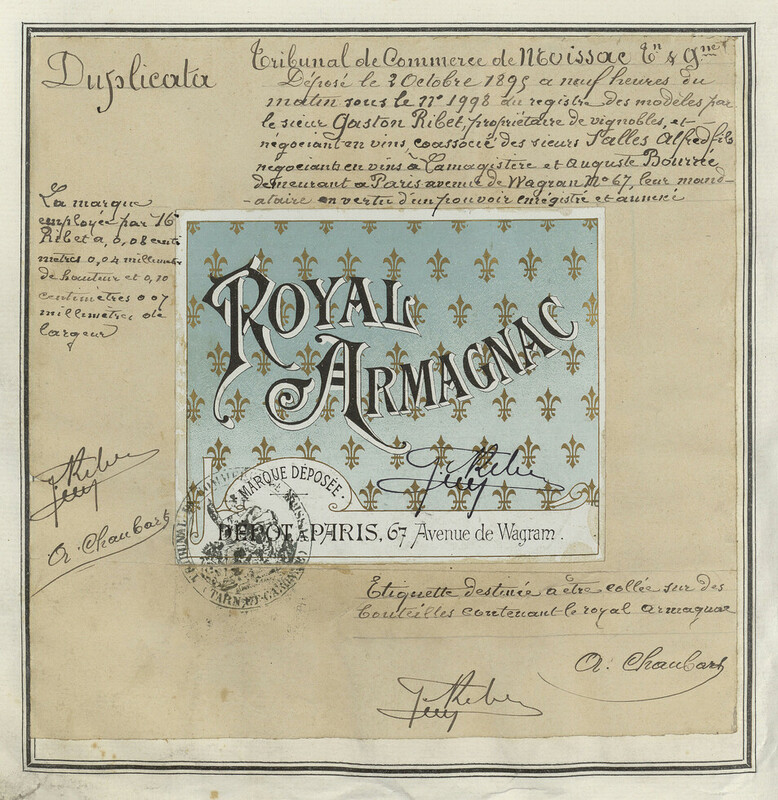 Duplicata
Tribunal de Commerce de Moissac Tn & Gne
Déposé le 2 Octobre 1895 a neuf heures du
matin sous le n° 1998 du registre des modèles par
le sieur Gaston Ribet, propriétaire de vignobles, et
négociant en vins, coassocié des sieurs Salles Alfred fils
négociant en vins à Lamagistère et Auguste Bourrée
demeurant a Paris avenue de Wagran No 67, leur mand-
-ataire en vertu d'un pouvoir enregistré et annexé
La marque
employée par
Ribet a, 0,08 centi
mètres 0,04 millimètres
de hauteur et 0,10
centimètres 007
millimètres de
largeur
ROYAL
ARMAGNAC
MARQUE DÉPOSÉE
DÉPOT A PARIS, 67 Avenue de Wagram.
TARN-ET-GARONNE
G. Ribet
A. Chaubart
Etiquette destinée a être collée sur des
bouteilles contenant le royal armagnac
A. Chaubart
G. Ribet